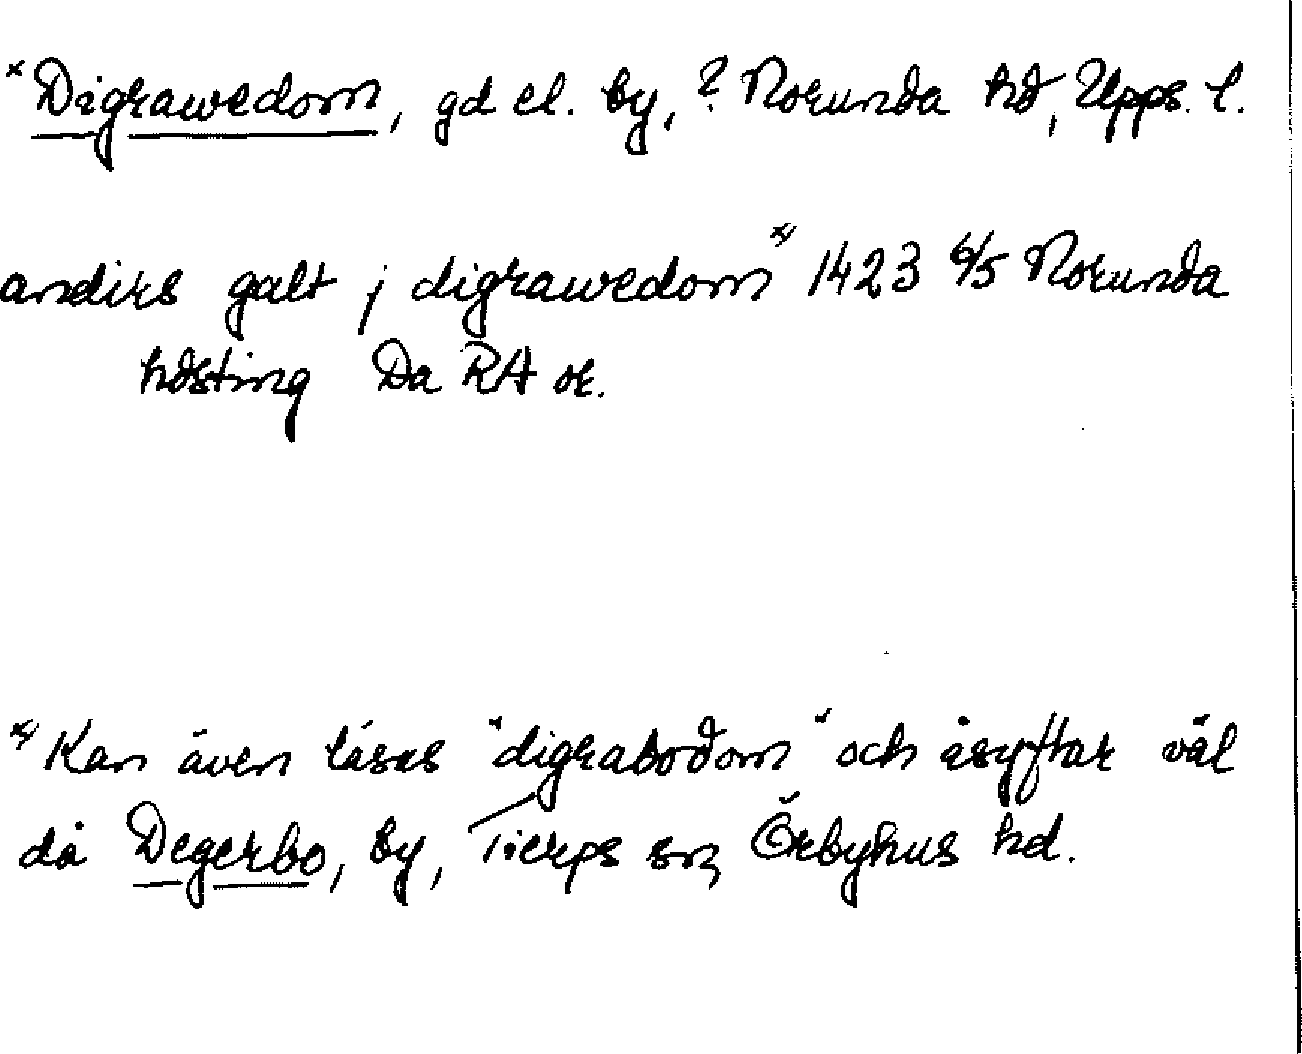 *Digrawedom, gd el. by, ? Norunda hd, Upps. l.
andirs galt j digrawedom *) 1423 6/5 Norunda
hdsting Da RA or.
*) Kan även läsas "digrabodom" och åsyftar väl
då Degerbo, by, Tierps sn, Örbyhus hd.